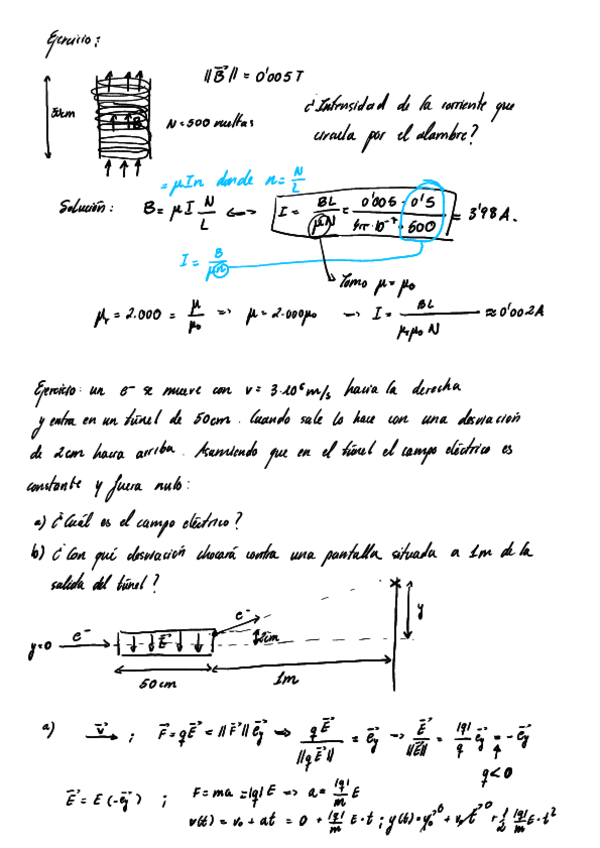 Ejercicio:
||B⃗|| = 0'005T
50cm
B
N=500 vueltas
¿Intensidad de la corriente que
circula por el alambre?
= μIn donde n = N/L
Solución: B = μ I N/L <-> I = BL/μN = 0'005 · 0'5 / 4π·10⁻⁷ · 500 = 3'98 A.
I = B/μn
Tomo μ = μ₀
μᵣ = 2.000 = μ/μ₀ => μ = 2.000μ₀ -> I = BL/μᵣμ₀ N ≈ 0'002A
Ejercicio: un e⁻ se mueve con v = 3·10⁶ m/s hacia la derecha
y entra en un túnel de 50cm. Cuando sale lo hace con una desviación
de 2cm hacia arriba. Asumiendo que en el túnel el campo eléctrico es
constante y fuera nulo:
a) ¿Cuál es el campo eléctrico?
b) ¿Con qué desviación chocará contra una pantalla situada a 1m de la
salida del túnel?
e⁻
y
y=0 e⁻ E⃗ 2cm
50cm 1m
a) v⃗ ; F⃗ = qE⃗ = ||F⃗|| e⃗y => qE⃗/||qE⃗|| = e⃗y -> E⃗/||E⃗|| = |q|/q e⃗y = -e⃗y
q<0
E⃗ = E(-e⃗y) ; F = ma = |q|E => a = |q|/m E
v(t) = v₀ + at = 0 + |q|/m E·t ; y(t) = y₀ + v₀t + 1/2 |q|/m E·t²